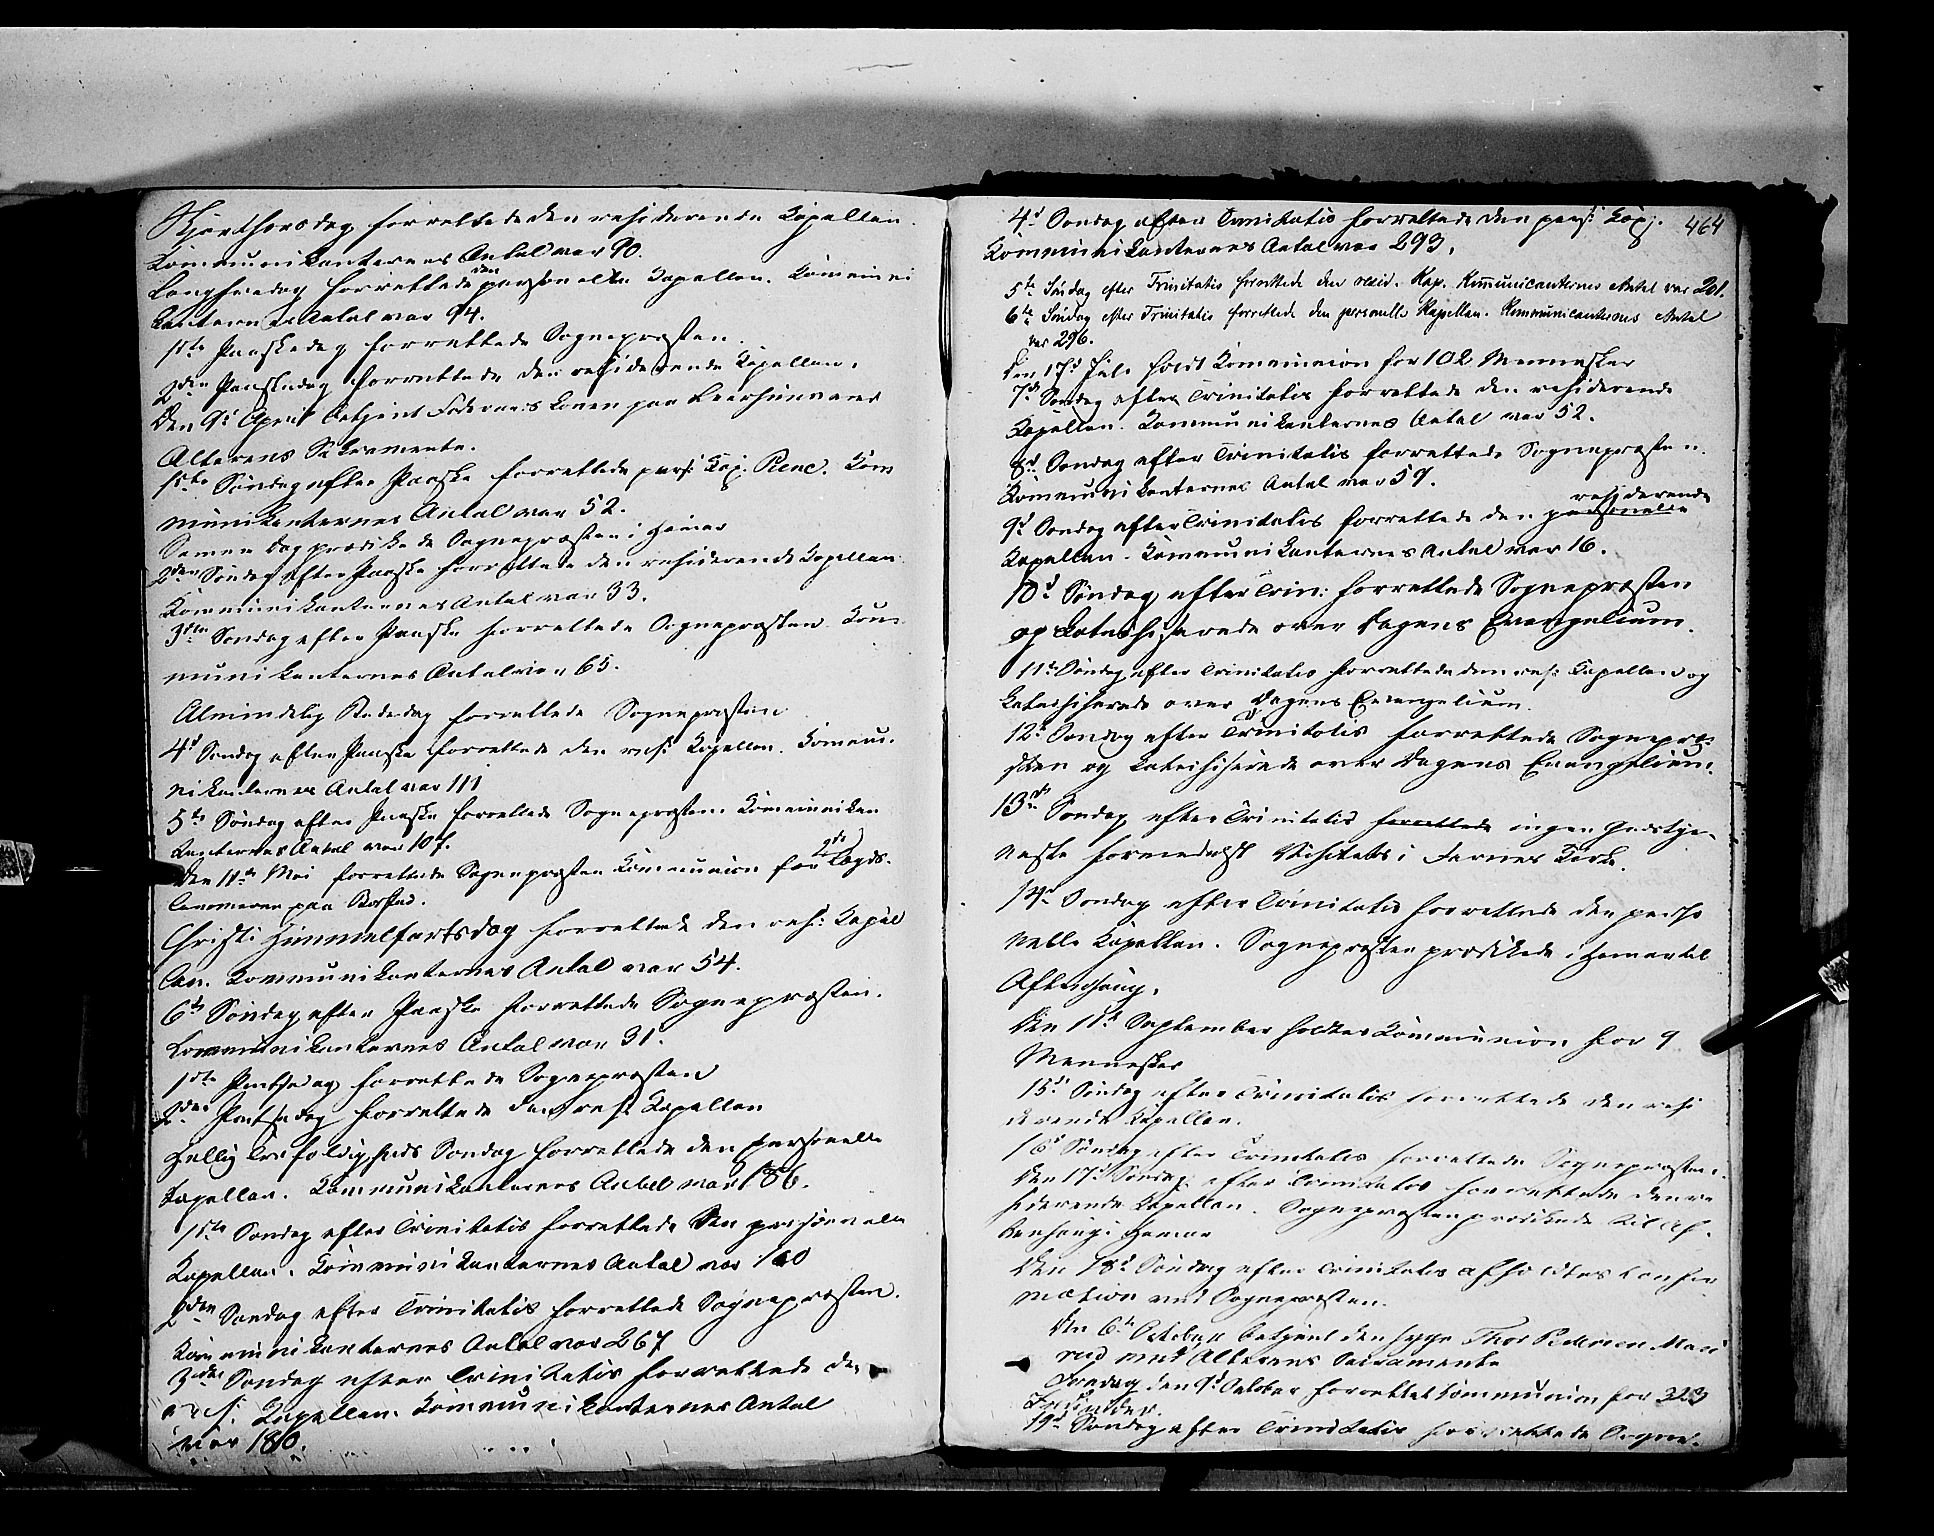 Skjærthorsdag forrettede den residerende Capellan
Communikanternes Antal var 90.
Langfredag forrettede den personelle Capellan. Communi
kanternes Antal var 94.
1ste Paaskedag forrettede Sognepræsten.
2den Paaskedag forrettede den residerende Capellan.
Den 9d April betjent Konen paa med
Alterens Sakramente.
1ste Søndag efter Paaske forrettede pers: Cap. Com
munikanternes Antal var 52.
Samme Dag prædikede Sognepræsten i Hamar
2den Søndag efter Paaske forrettede den residerende Capellan
Communikanternes Antal var 33.
3die Søndag efter Paaske forrettede Sognepræsten. Com
munikanternes Antal var 65.
Almindelig Bededag forrettede Sognepræsten
4d Søndag efter Paaske forrettede den resi: Kapellan. Commu-
nikanternes Antal var 111
5te Søndag efter Paaske forrettede Sognepræsten
kanternes Antal var 107.
Den 11te Mai forrettede Sognepræsten Communion for Lægds-
lemmerne paa
Christi Himmelfartsdag forrettede den res: Capel
lan. Kommunikanternes Antal var 54.
6te Søndag efter Paaske forrettede Sognepræsten.
Communikanternes Antal var 31.
1ste Pintsedag forrettede Sognepræsten
2den Pintsedag forrettede den resi: Capellan
Hellig Trefoldigheds Søndag forrettede den personelle
Capellan. Kommunikanternes Antal var 186.
1ste Søndag efter Trinitatis forrettede den personelle
Kapellan. Communikanternes Antal var 160
2den Søndag efter Trinitatis forrettede Sognepræsten.
Communikanternes Antal var 267
3die Søndag efter Trinitatis forrettede den
resi. Kapellan. Communikanternes Antal
var 180.
464
4d Søndag efter Trinitatis forrettede den pers: Cap:
Kommunikanternes Antal var 293.
5te Søndag efter Trinitatis forrettede den resid. Kap. Kommunicanternes Antal var 201.
6te Søndag efter Trinitatis forrettede den personelle Kapellan. Kommunicanternes Antal
var 296.
Den 17d Juli holdt Communion for 102 Mennesker
7d Søndag efter Trinitatis forrettede den residerende
Kapellan. Kommunikanternes Antal var 52.
8d Søndag efter Trinitatis forrettede Sognepræsten.
Kommunikanternes Antal var 59.
9d Søndag efter Trinitatis forrettede den personelle residerende
Kapellan. Communikanternes Antal var 16.
10d Søndag efter Trin: forrettede Sognepræsten
og katechiserede over Dagens Evangelium.
11te Søndag efter Trinitatis forrettede den res: Capellan og
katechiserede over Dagens Evangelium.
12d Søndag efter Trinitatis forrettede Sognepræ-
sten og katechiserede over Dagens Evangelium.
13de Søndag efter Trinitatis forrettede ingen Gudstje-
neste formedelst Visitats i Kirke.
14d Søndag efter Trinitatis forrettede den perso
nelle Kapellan. Sognepræsten prædikede i Hamar til
Aftensang.
Den 11te September holdtes Communion for 9
Mennesker
15d Søndag efter Trinitatis forrettede den resi
derende Capellan.
16d Søndag efter Trinitatis forrettede Sognepræsten.
Den 17d Søndag efter Trinitatis forrettede den re
siderende Capellan. Sognepræsten prædikede til Af-
tensang i Hamar
Den 18d Søndag efter Trinitatis afholdtes Confir
mation ved Sognepræsten.
Den 6te October betjent den syge Thor Pedersen
rud med Alterens Sacramente
Fredag den 9d October forrettet Communion for 323
19d Søndag efter Trinitatis forrettede Sogne-